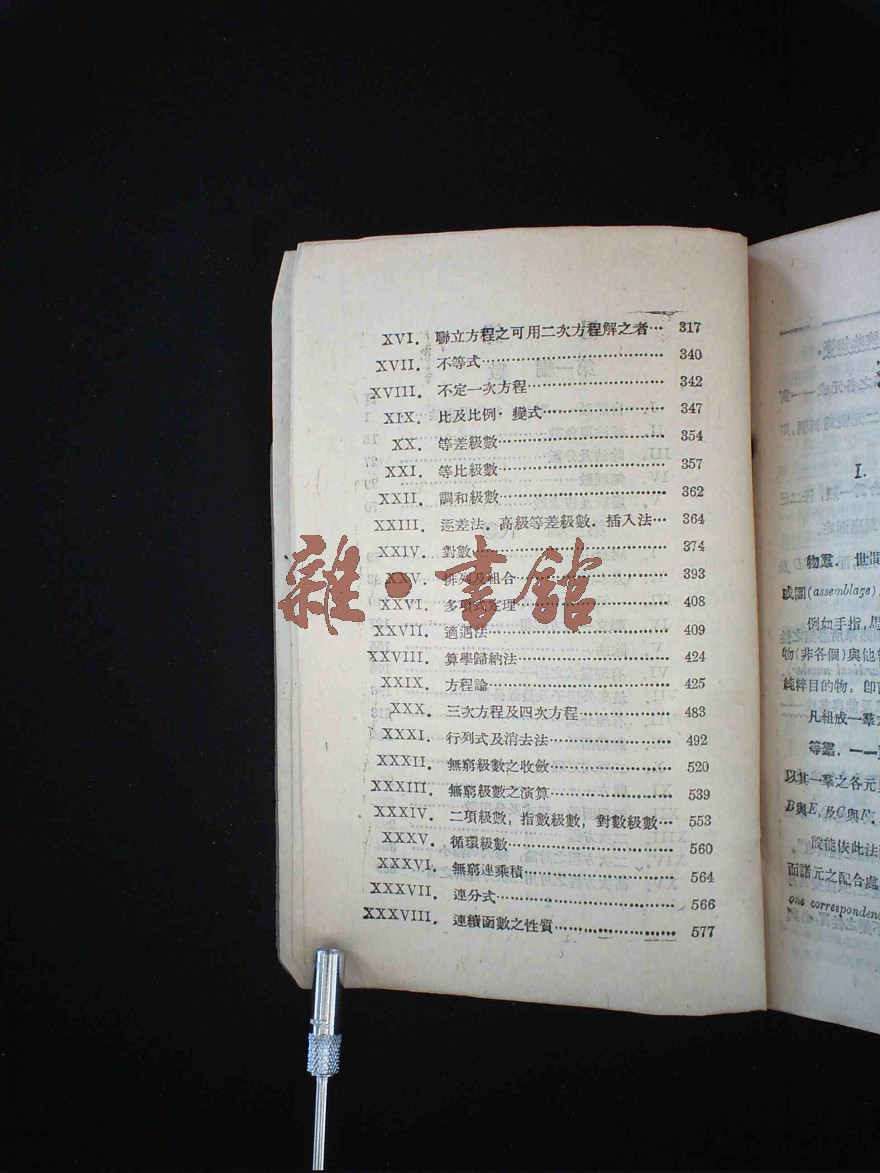 XVI. 聯立方程之可用二次方程解之者… 317
XVII. 不等式………… 340
XVIII. 不定一次方程………… 342
XIX. 比及比例. 變式………… 347
XX. 等差級數………… 354
XXI. 等比級數………… 357
XXII. 調和級數………… 362
XXIII. 逐差法. 高級等差級數. 插入法… 364
XXIV. 對數………… 374
XXV. 排列及組合………… 393
XXVI. 多項式定理………… 408
XXVII. 適遇法………… 409
XXVIII. 算學歸納法………… 424
XXIX. 方程論………… 425
XXX. 三次方程及四次方程………… 483
XXXI. 行列式及消去法………… 492
XXXII. 無窮級數之收斂………… 520
XXXIII. 無窮級數之演算………… 539
XXXIV. 二項級數, 指數級數, 對數級數… 553
XXXV. 循環級數………… 560
XXXVI. 無窮連乘積………… 564
XXXVII. 連分式………… 566
XXXVIII. 連續函數之性質………… 577
雜·書館
I.
物羣. 世間
或團(assemblage)
例如手指, 馬
物(非各個)與他
純粹目的物, 卽
凡組成一羣
等羣. 一一
以其一羣之各元
B與E, 及C與F.
設能依此法
而諸元之配合處
one corresponden